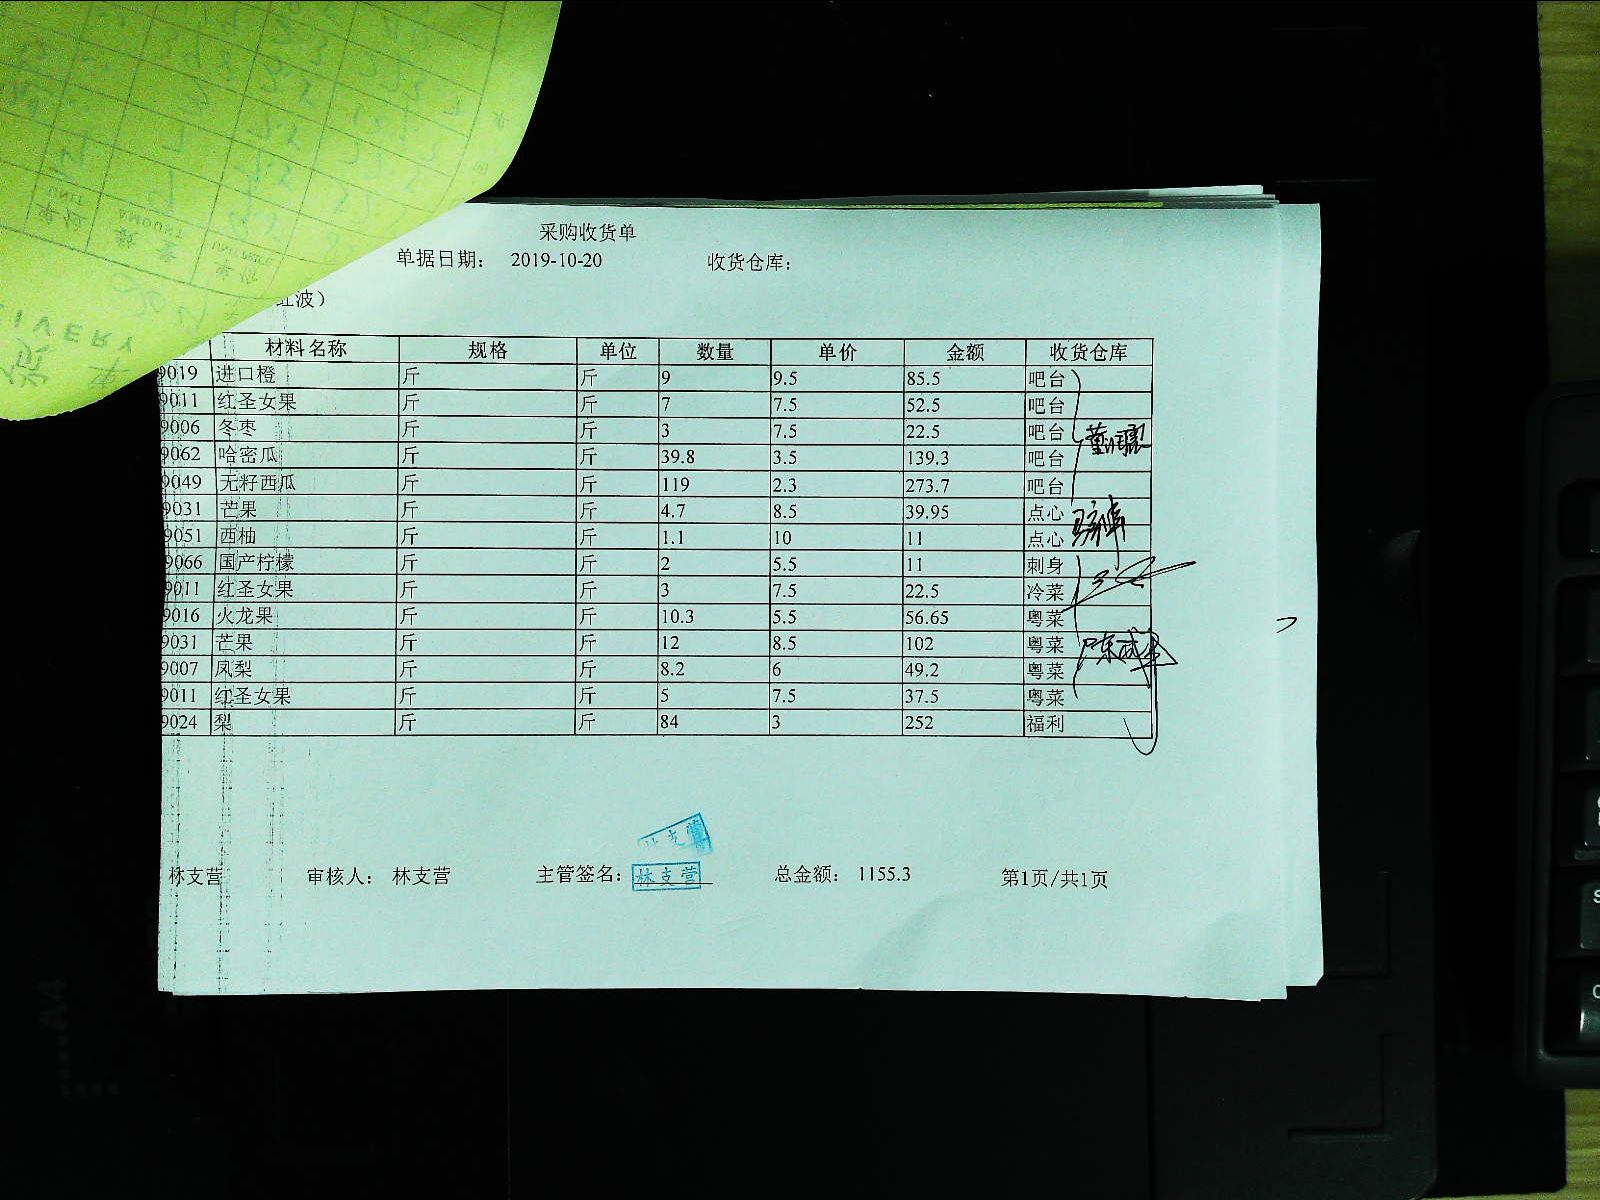 采购收货单
单据日期： 2019-10-20 收货仓库：
波）
材料名称 规格 单位 数量 单价 金额 收货仓库
9019 进口橙 斤 斤 9 9.5 85.5 吧台
9011 红圣女果 斤 斤 7 7.5 52.5 吧台
9006 冬枣 斤 斤 3 7.5 22.5 吧台
9062 哈密瓜 斤 斤 39.8 3.5 139.3 吧台
9049 无籽西瓜 斤 斤 119 2.3 273.7 吧台
9031 芒果 斤 斤 4.7 8.5 39.95 点心
9051 西柚 斤 斤 1.1 10 11 点心
9066 国产柠檬 斤 斤 2 5.5 11 刺身
9011 红圣女果 斤 斤 3 7.5 22.5 冷菜
9016 火龙果 斤 斤 10.3 5.5 56.65 粤菜
9031 芒果 斤 斤 12 8.5 102 粤菜
9007 凤梨 斤 斤 8.2 6 49.2 粤菜
9011 红圣女果 斤 斤 5 7.5 37.5 粤菜
9024 梨 斤 斤 84 3 252 福利
支营
林支营 审核人： 林支营 主管签名： 林支营 总金额： 1155.3 第1页/共1页
A4